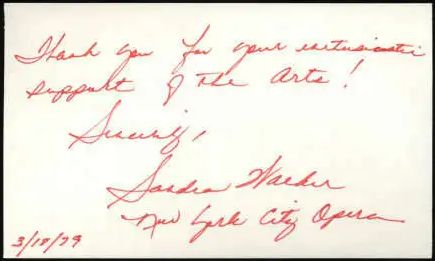 Thank you for your enthusiastic
support of the Arts!
Sincerely,
Sandra Walker
New York City Opera
3/18/79